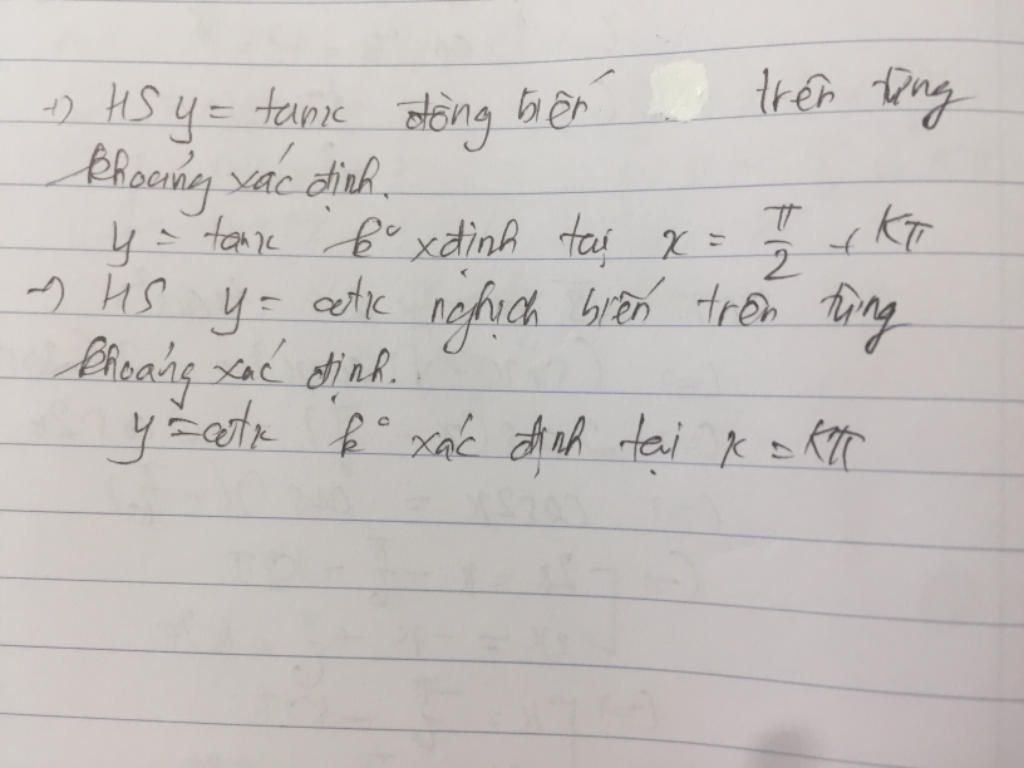 → HS y = tanx đồng biến trên từng
khoảng xác định.
y = tanx k° xđịnh tại x = π/2 + Kπ
→ HS y = cotx nghịch biến trên từng
khoảng xác định.
y = cotx k° xác định tại x = Kπ